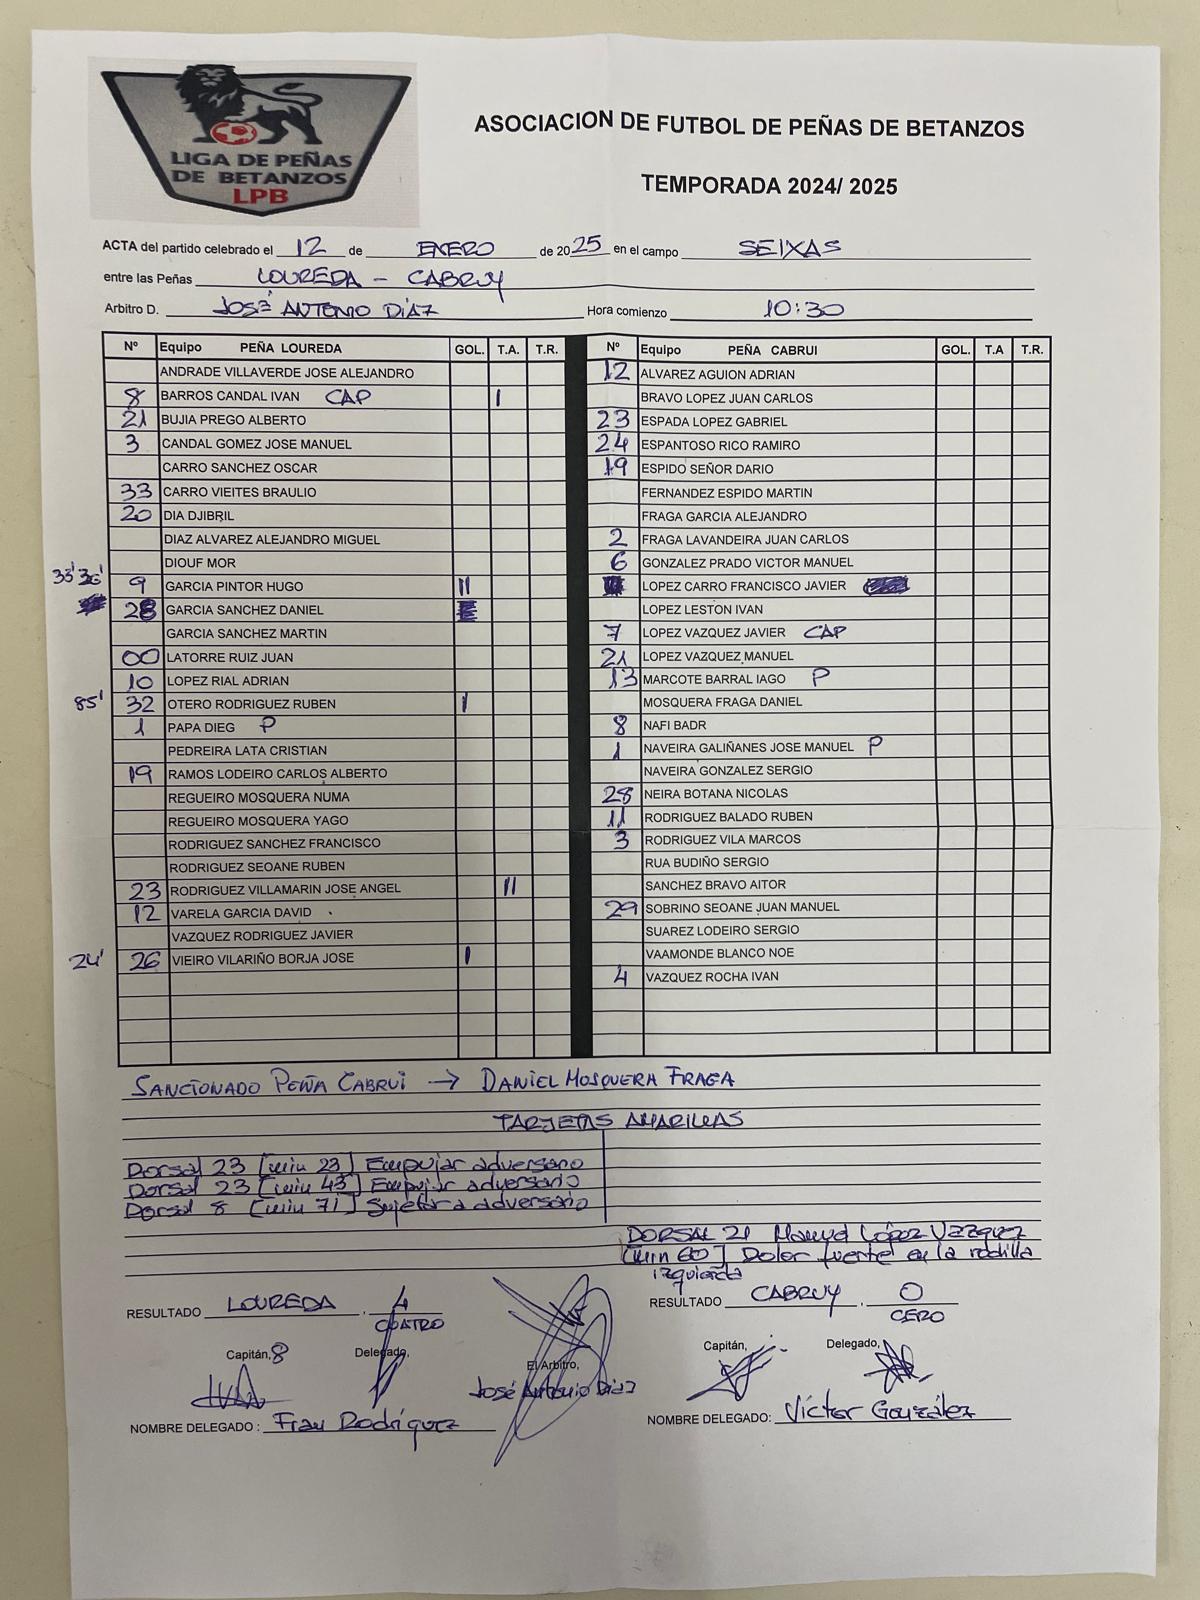 LIGA DE PEÑAS
DE BETANZOS
LPB
ASOCIACION DE FUTBOL DE PEÑAS DE BETANZOS
TEMPORADA 2024/ 2025
ACTA del partido celebrado el 12 de ENERO de 2025 en el campo SEIXAS
entre las Peñas LOUREDA - CABRUY
Arbitro D. JOSÉ ANTONIO DÍAZ Hora comienzo 10:30
Nº Equipo PEÑA LOUREDA GOL. T.A. T.R.
ANDRADE VILLAVERDE JOSE ALEJANDRO
8 BARROS CANDAL IVAN CAP I
21 BUJIA PREGO ALBERTO
3 CANDAL GOMEZ JOSE MANUEL
CARRO SANCHEZ OSCAR
33 CARRO VIEITES BRAULIO
20 DIA DJIBRIL
DIAZ ALVAREZ ALEJANDRO MIGUEL
DIOUF MOR
33' 36' 9 GARCIA PINTOR HUGO II
28 GARCIA SANCHEZ DANIEL
GARCIA SANCHEZ MARTIN
00 LATORRE RUIZ JUAN
10 LOPEZ RIAL ADRIAN
85' 32 OTERO RODRIGUEZ RUBEN I
1 PAPA DIEG P
PEDREIRA LATA CRISTIAN
19 RAMOS LODEIRO CARLOS ALBERTO
REGUEIRO MOSQUERA NUMA
REGUEIRO MOSQUERA YAGO
RODRIGUEZ SANCHEZ FRANCISCO
RODRIGUEZ SEOANE RUBEN
23 RODRIGUEZ VILLAMARIN JOSE ANGEL II
12 VARELA GARCIA DAVID
VAZQUEZ RODRIGUEZ JAVIER
24' 26 VIEIRO VILARIÑO BORJA JOSE I
Nº Equipo PEÑA CABRUI GOL. T.A T.R.
12 ALVAREZ AGUION ADRIAN
BRAVO LOPEZ JUAN CARLOS
23 ESPADA LOPEZ GABRIEL
24 ESPANTOSO RICO RAMIRO
19 ESPIDO SEÑOR DARIO
FERNANDEZ ESPIDO MARTIN
FRAGA GARCIA ALEJANDRO
2 FRAGA LAVANDEIRA JUAN CARLOS
6 GONZALEZ PRADO VICTOR MANUEL
LOPEZ CARRO FRANCISCO JAVIER
LOPEZ LESTON IVAN
7 LOPEZ VAZQUEZ JAVIER CAP
21 LOPEZ VAZQUEZ MANUEL
13 MARCOTE BARRAL IAGO P
MOSQUERA FRAGA DANIEL
8 NAFI BADR
1 NAVEIRA GALIÑANES JOSE MANUEL P
NAVEIRA GONZALEZ SERGIO
28 NEIRA BOTANA NICOLAS
11 RODRIGUEZ BALADO RUBEN
3 RODRIGUEZ VILA MARCOS
RUA BUDIÑO SERGIO
SANCHEZ BRAVO AITOR
29 SOBRINO SEOANE JUAN MANUEL
SUAREZ LODEIRO SERGIO
VAAMONDE BLANCO NOE
4 VAZQUEZ ROCHA IVAN
SANCIONADO PEÑA CABRUI → DANIEL MOSQUERA FRAGA
TARJETAS AMARILLAS
Dorsal 23 [min 23] Empujar adversario
Dorsal 23 [min 43] Empujar adversario
Dorsal 8 [min 71] Sujetar a adversario
DORSAL 21 Manuel López Vázquez
[min 60] Dolor fuerte en la rodilla
izquierda
RESULTADO LOUREDA, 4
CUATRO
RESULTADO CABRUY, 0
CERO
Capitán, 8 Delegado,
El Arbitro,
José Antonio Díaz
Capitán, Delegado,
NOMBRE DELEGADO : Fran Rodríguez
NOMBRE DELEGADO: Víctor González